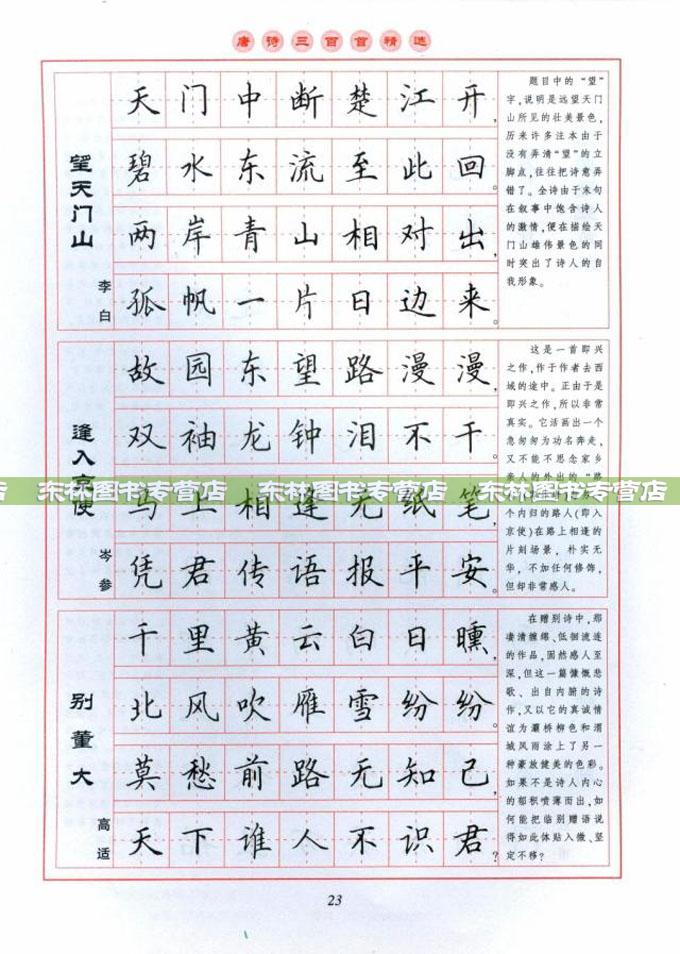 唐诗三百首精选
望天门山
李白
天门中断楚江开,
碧水东流至此回。
两岸青山相对出,
孤帆一片日边来。
题目中的“望”
字,说明是远望天门
山所见的壮美景色,
历来许多注本由于
没有弄清“望”的立
脚点,往往把诗意弄
错了。全诗由于末句
在叙事中饱含诗人
的激情,便在描绘天
门山雄伟景色的同
时突出了诗人的自
我形象。
逢入京使
岑参
故园东望路漫漫,
双袖龙钟泪不干。
马上相逢无纸笔,
凭君传语报平安。
这是一首即兴
之作,作于作者去西
域的途中。正由于是
即兴之作,所以非常
真实。它活画出一个
急匆匆为功名奔走,
又不能不思念家乡
亲人的外出的
个内归的路人(即入
京使)在路上相逢的
片刻场景,朴实无
华,不加任何修饰,
但却非常感人。
店 东林图书专营店 东林图书专营店 东林图书专营店
别董大
高适
千里黄云白日曛,
北风吹雁雪纷纷。
莫愁前路无知己,
天下谁人不识君?
在赠别诗中,那
凄清缠绵、低徊流连
的作品,固然感人至
深,但这一篇慷慨悲
歌、出自内腑的诗
作,又以它的真诚情
谊为灞桥柳色和渭
城风雨涂上了另一
种豪放健美的色彩。
如果不是诗人内心
的郁积喷薄而出,如
何能把临别赠语说
得如此体贴入微、坚
定不移?
23